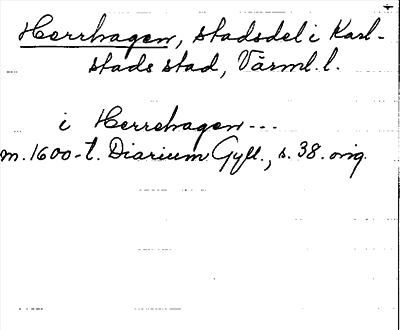 Herrhagen, stadsdel i Karl-
stads stad, Värml. l.
i Herrehagen ---
m. 1600-t. Diarium Gyll., s. 38. orig.